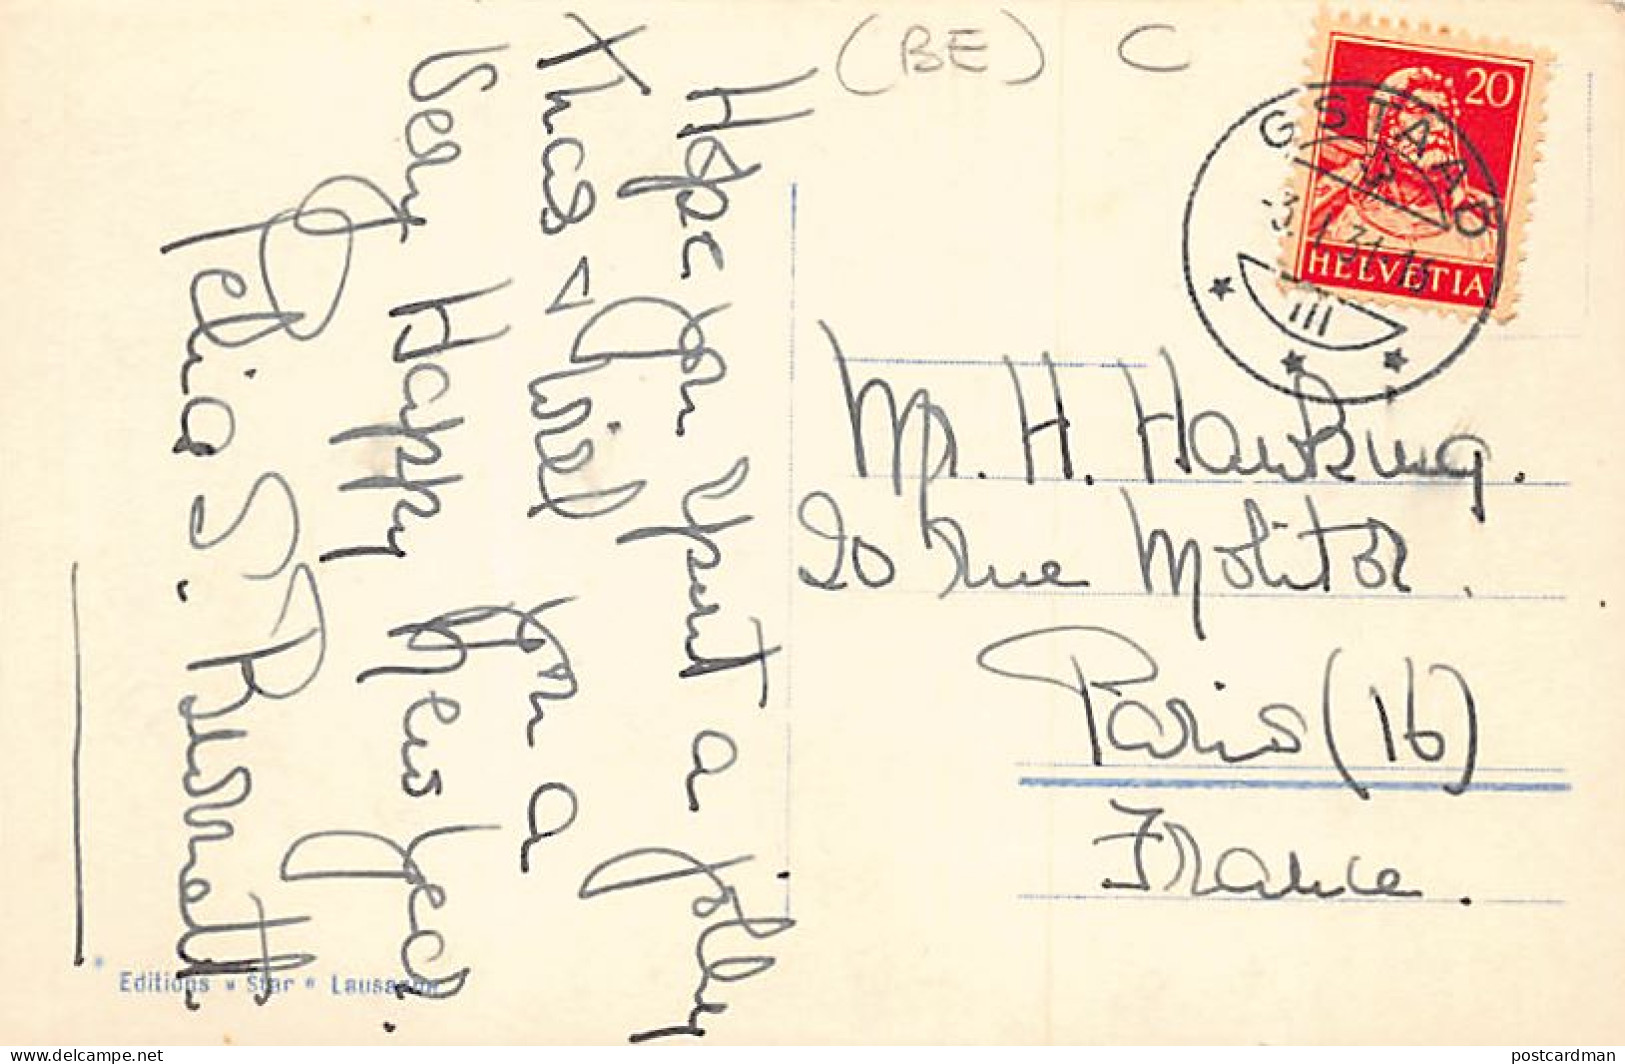 (BE) C
20
HELVETIA
GSTAAD
-3.I.31-15
III
Hope you spent a jolly
Xmas &
Very Happy New Year.
Mr. H. Hawking.
20 rue Molitor.
Paris (16)
France.
Editions « Star » Lausanne
delcampe.net
postcardman